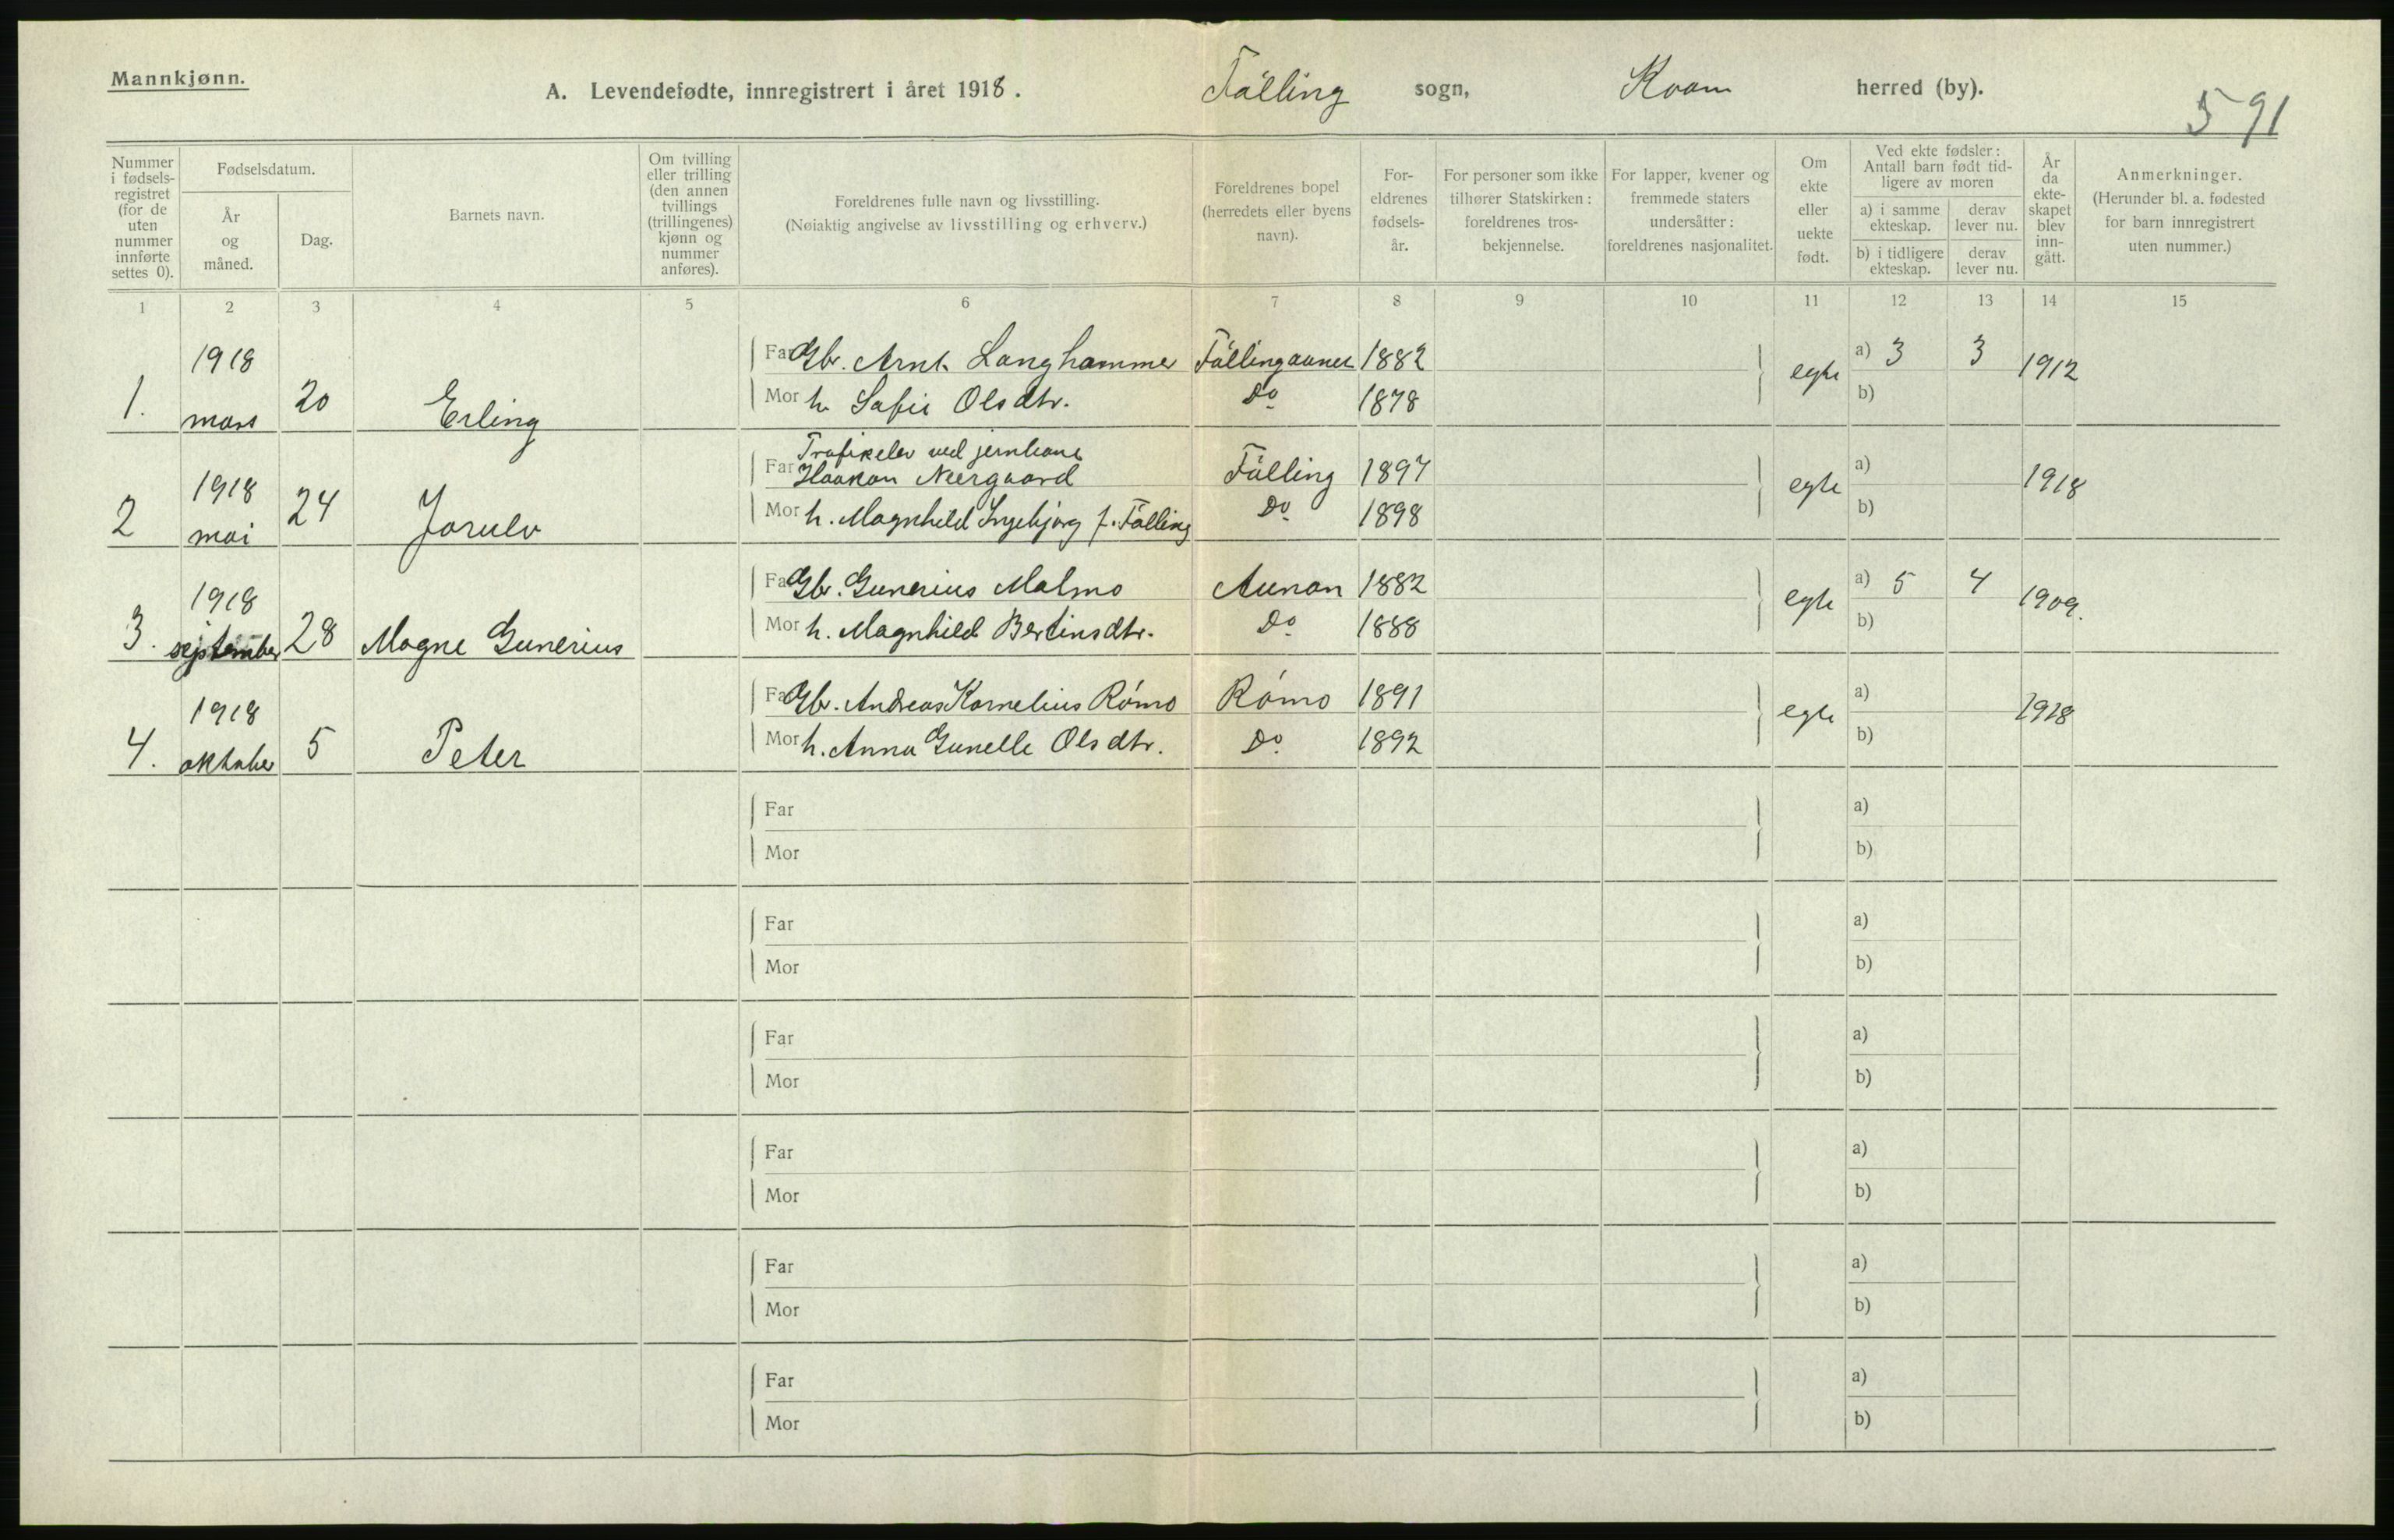 Mannkjønn.
A. Levendefødte, innregistrert i året 1918. Fölling sogn, Kvam herred (by).
591
Nummer i fødselsregistret (for de uten nummer innførte settes 0).
Fødselsdatum.
År og måned.
Dag.
Barnets navn.
Om tvilling eller trilling (den annen tvillings (trillingenes) kjønn og nummer anføres).
Foreldrenes fulle navn og livsstilling.
(Nøiaktig angivelse av livsstilling og erhverv.)
Foreldrenes bopel (herredets eller byens navn).
Foreldrenes fødselsår.
For personer som ikke tilhører Statskirken: foreldrenes trosbekjennelse.
For lapper, kvener og fremmede staters undersåtter: foreldrenes nasjonalitet.
Om ekte eller uekte født.
Ved ekte fødsler: Antall barn født tidligere av moren
a) i samme ekteskap. derav lever nu.
b) i tidligere ekteskap. derav lever nu.
År da ekteskapet blev inngått.
Anmerkninger.
(Herunder bl. a. fødested for barn innregistrert uten nummer.)
1 2 3 4 5 6 7 8 9 10 11 12 13 14 15
1. 1918 mars 20 Erling
Far Gbr. Arnt Langhammer Föllingaunet 1882 egte a) 3 3 1912
Mor h. Sofie Olsdtr. Do 1878 b)
2 1918 mai 24 Jorulv
Trafikelev ved jernbane
Far Haakon Neergaard Fölling 1897 egte a) 1918
Mor h. Magnhild Ingebjørg f. Fölling Do 1898 b)
3. 1918 september 28 Magne Gunerius
Far Gbr. Gunerius Malmo Aunan 1882 egte a) 5 4 1909.
Mor h. Magnhild Bertinsdtr. Do 1888 b)
4. 1918 oktober 5 Peter
Far Gbr. Andreas Kornelius Römo Römo 1891 egte a) 1918
Mor h. Anna Gunelle Olsdtr. Do 1892 b)
Far a)
Mor b)
Far a)
Mor b)
Far a)
Mor b)
Far a)
Mor b)
Far a)
Mor b)
Far a)
Mor b)